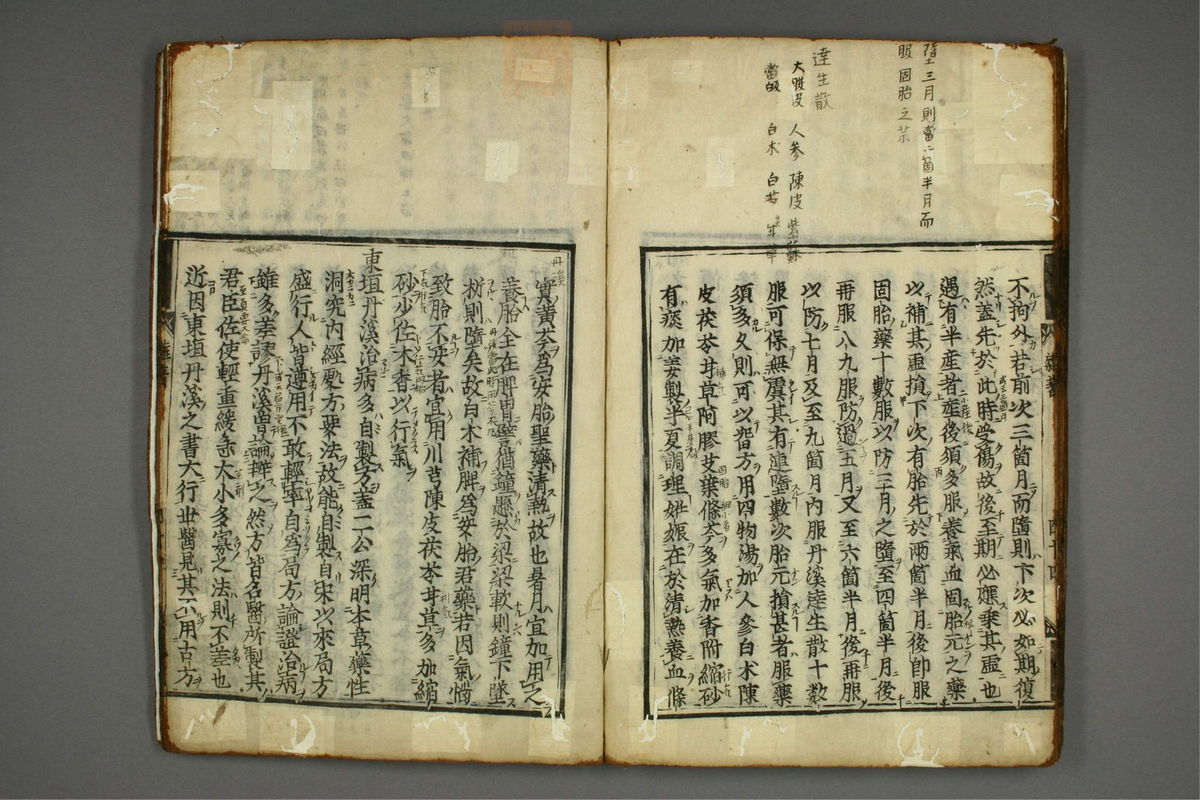 墮三月則當二箇半月而
服固胎之
達生散
大腹皮 人參 陳皮 紫蘇
當皈 白朮 白芍
不拘外若前次三箇月而墮則下次必如期復
然蓋先於此時受傷故後至期必應乘其虛也
遇有半産者産後須多服養氣血固胎元之藥
以補其虛損下次有胎先於兩箇半月後卽服
固胎藥十數服以防三月之墮至四箇半月後
再服八九服防過五月又至六箇半月後再服
以防七月及至九箇月內服丹溪達生散十數
服可保無虞其有連墮數次胎元損甚者服藥
須多久則可以留方用四物湯加人參白朮陳
皮茯苓甘草阿膠艾葉條芩多氣加香附縮砂
有痰加姜製半夏調理妊娠在於清熱養血條
丹溪
實黃芩爲安胎聖藥清熱故也暑月宜加用之
養胎全在脾胃譬猶鐘懸於梁梁軟則鐘下墜
折則墮矣故白朮補脾爲安胎君藥若因氣惱
致胎不安者宜用川芎陳皮茯苓甘草多加縮
砂少佐木香以行氣
東垣丹溪治病多自製方蓋二公深明本草藥性
洞究內經處方要法故能自製自宋以來局方
盛行人皆遵用不敢輕率自爲局方論證治病
雖多差謬丹溪曾論辨之然方皆名醫所製其
君臣佐使輕重緩急大小多寡之法則不差也
近因東垣丹溪之書大行世醫見其不用古方